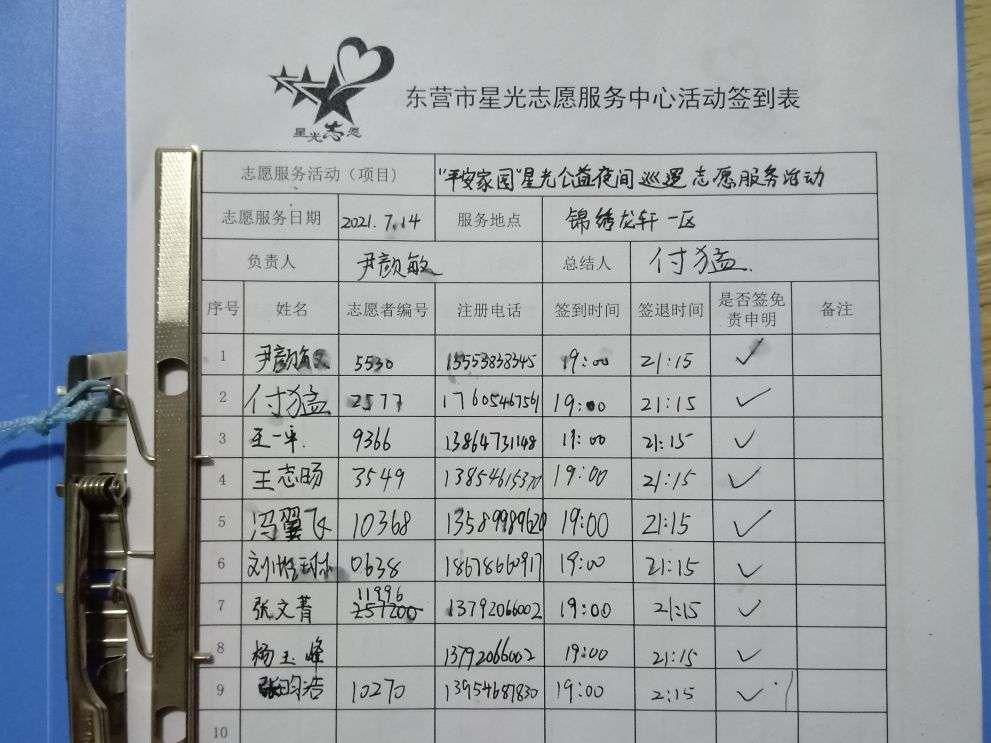 星光志愿
东营市星光志愿服务中心活动签到表
志愿服务活动（项目） "平安家园"星光公益夜间巡逻志愿服务活动
志愿服务日期 2021.7.14 服务地点 锦绣龙轩一区
负责人 尹颜敏 总结人 付猛
序号 姓名 志愿者编号 注册电话 签到时间 签退时间 是否签免责申明 备注
1 尹颜敏 5530 15553838345 19:00 21:15 ✓
2 付猛 2577 17605467561 19:00 21:15 ✓
3 王一平 9366 13864731148 19:00 21:15 ✓
4 王志旸 3549 13854615370 19:00 21:15 ✓
5 冯翼飞 10368 13589989620 19:00 21:15 ✓
6 0638 18678660917 19:00 21:15 ✓
7 张文菁 11996 13792066002 19:00 21:15 ✓
8 杨玉峰 13792066002 19:00 21:15 ✓
9 张昀浩 10270 13954687830 19:00 2:15 ✓
10